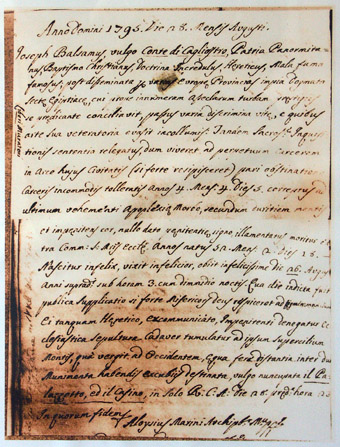 Anno Domini 1795. Die 28. Mensis Augusti.
Joseph Balsamus, vulgo Conte di Cagliostro, Patria Panormita-
nus, Baptismo Christianus, Doctrina Incredulus, Hereticus, Mala fama
famosus, post disseminata per varias Europe Provincias impia Dogmata
Sectæ Egiptiacæ, cui prope innumeram Asseclarum turbam
se predicante conciliavit, passus varia discrimina vitæ, e quibus
arte sua veteratoria evasit incolumis: Tandem Inqui-
sitionis sententia relegatus dum viveret ad perpetuam carcerem
in Arce hujus Civitatis (si forte resipisceret) pari obstinatione
Carceris incommodis toleratis Annis 4 Mens. 4 Dies 5. correptus
ultimum vehementi Apoplexiæ Morbo, secundum duritiem mentis
et impenitens cor, nullo dato penitentiæ signo illamentatus moritur
extra Comm. S. Mris Eccle. Annos natus 52. Mens. 2 Dies 28.
Nascitur infelix, vixit infelicior, obiit infelicissime die 26. Augusti
Anni suprad. sub horam 3. cum dimidio noctis. Qua die indicta fuit
publica Supplicatio si forte Misericors Deus respiceret ad
Ei tanquam Heretico, excommunicato, Impenitenti denegatur Ec-
clesiastica sepultura. Cadaver tumulatur ad ipsum supercilium
Montis, qua vergit ad Occidentem, æqua fere distantia inter duo
Munimenta habendis excubiis destinata, vulgo nuncupata il Pa-
lazzetto, ed il Casino, in Solo R. C. A. die 28. præd. hora 23
In quorum fidem
Aloysius Marini Archipb.